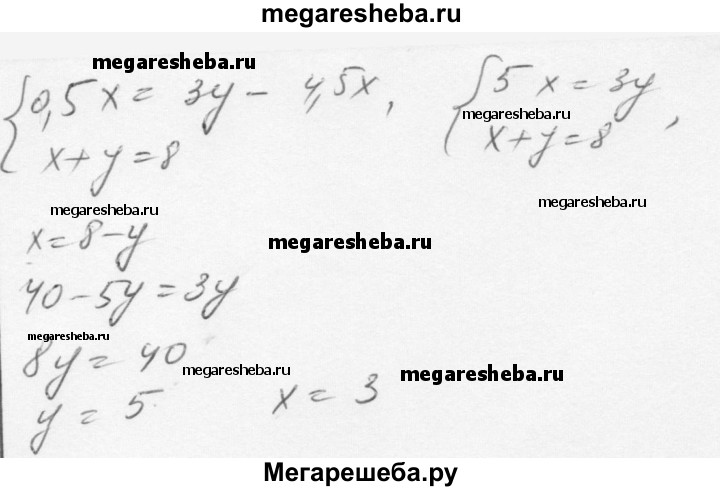 megaresheba.ru
megaresheba.ru
{ 0,5x = 3y - 4,5x, { 5x = 3y
megaresheba.ru
x+y=8 x+y=8,
megaresheba.ru megaresheba.ru
x=8-y megaresheba.ru
40-5y=3y
megaresheba.ru
8y=40 megaresheba.ru megaresheba.ru
y=5 x=3
Мегарешеба.ру